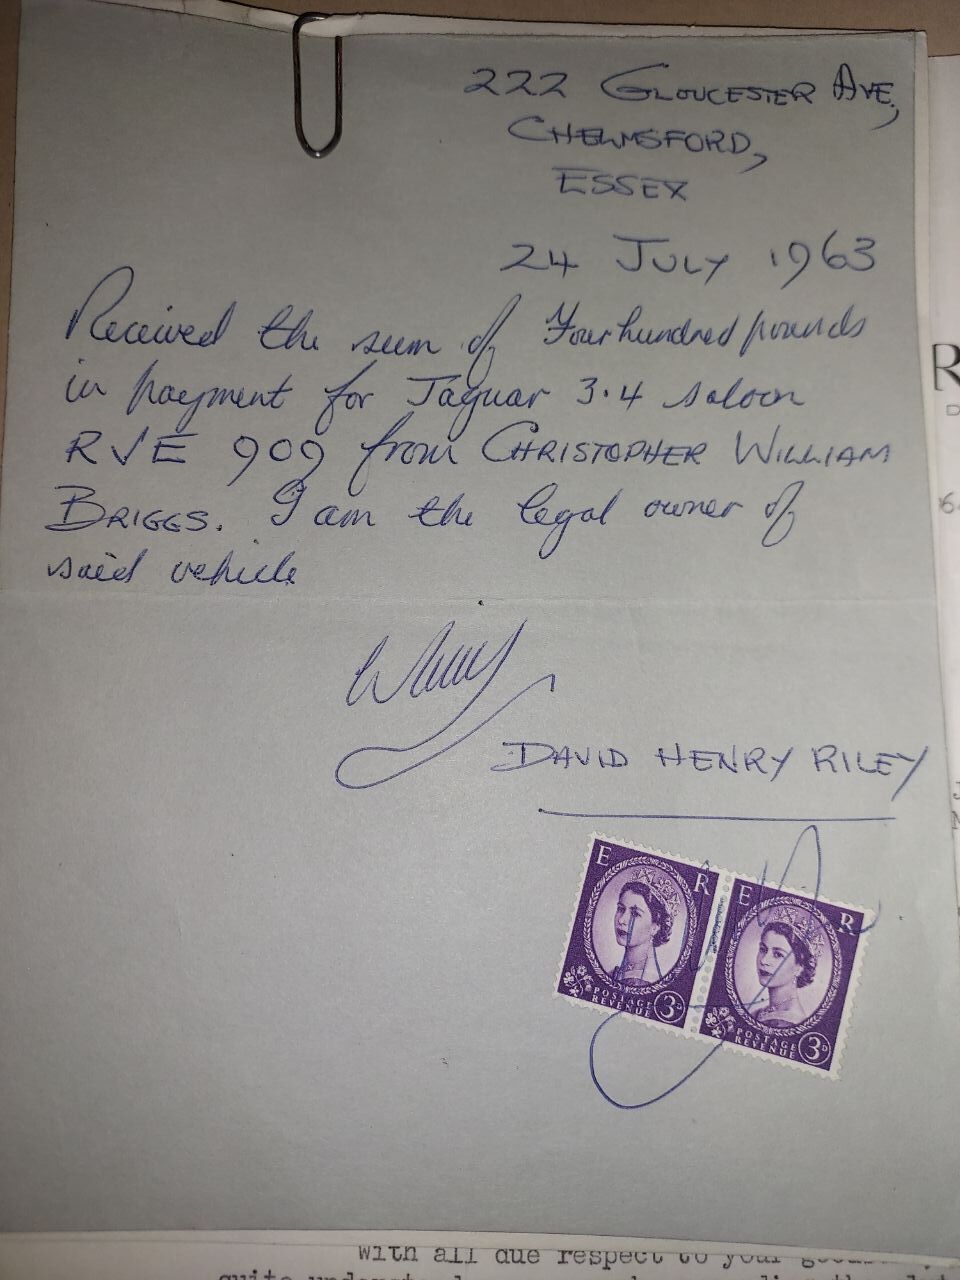 222 GLOUCESTER AVE,
CHELMSFORD,
ESSEX
24 JULY 1963
Received the sum of Four hundred pounds
in payment for Jaguar 3.4 saloon
RVE 909 from CHRISTOPHER WILLIAM
BRIGGS. I am the legal owner of
said vehicle
DAVID HENRY RILEY
E R
POSTAGE
REVENUE
3D
E R
POSTAGE
REVENUE
3D
R
with all due respect to your